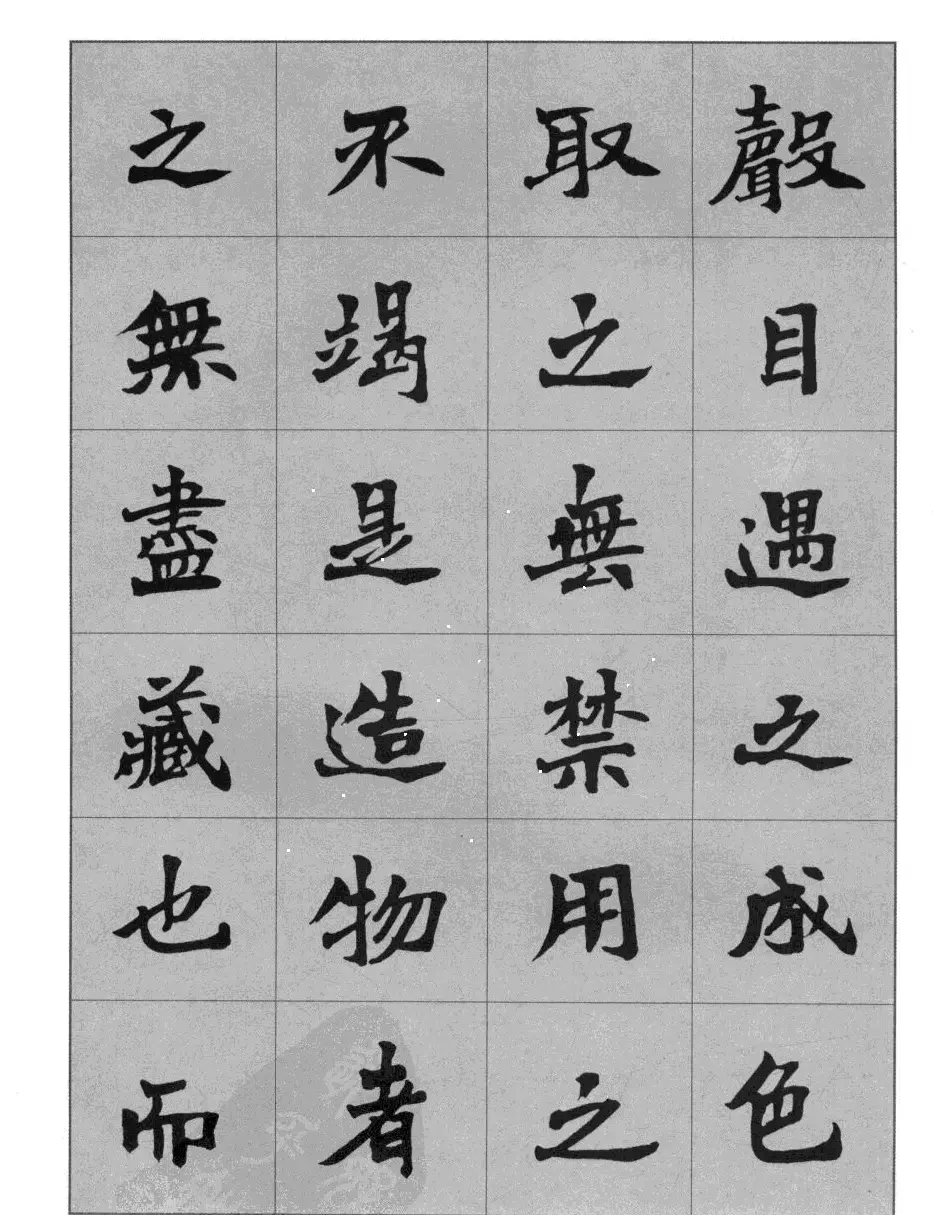 聲目遇之成色
取之無禁用之
不竭是造物者
之無盡藏也而